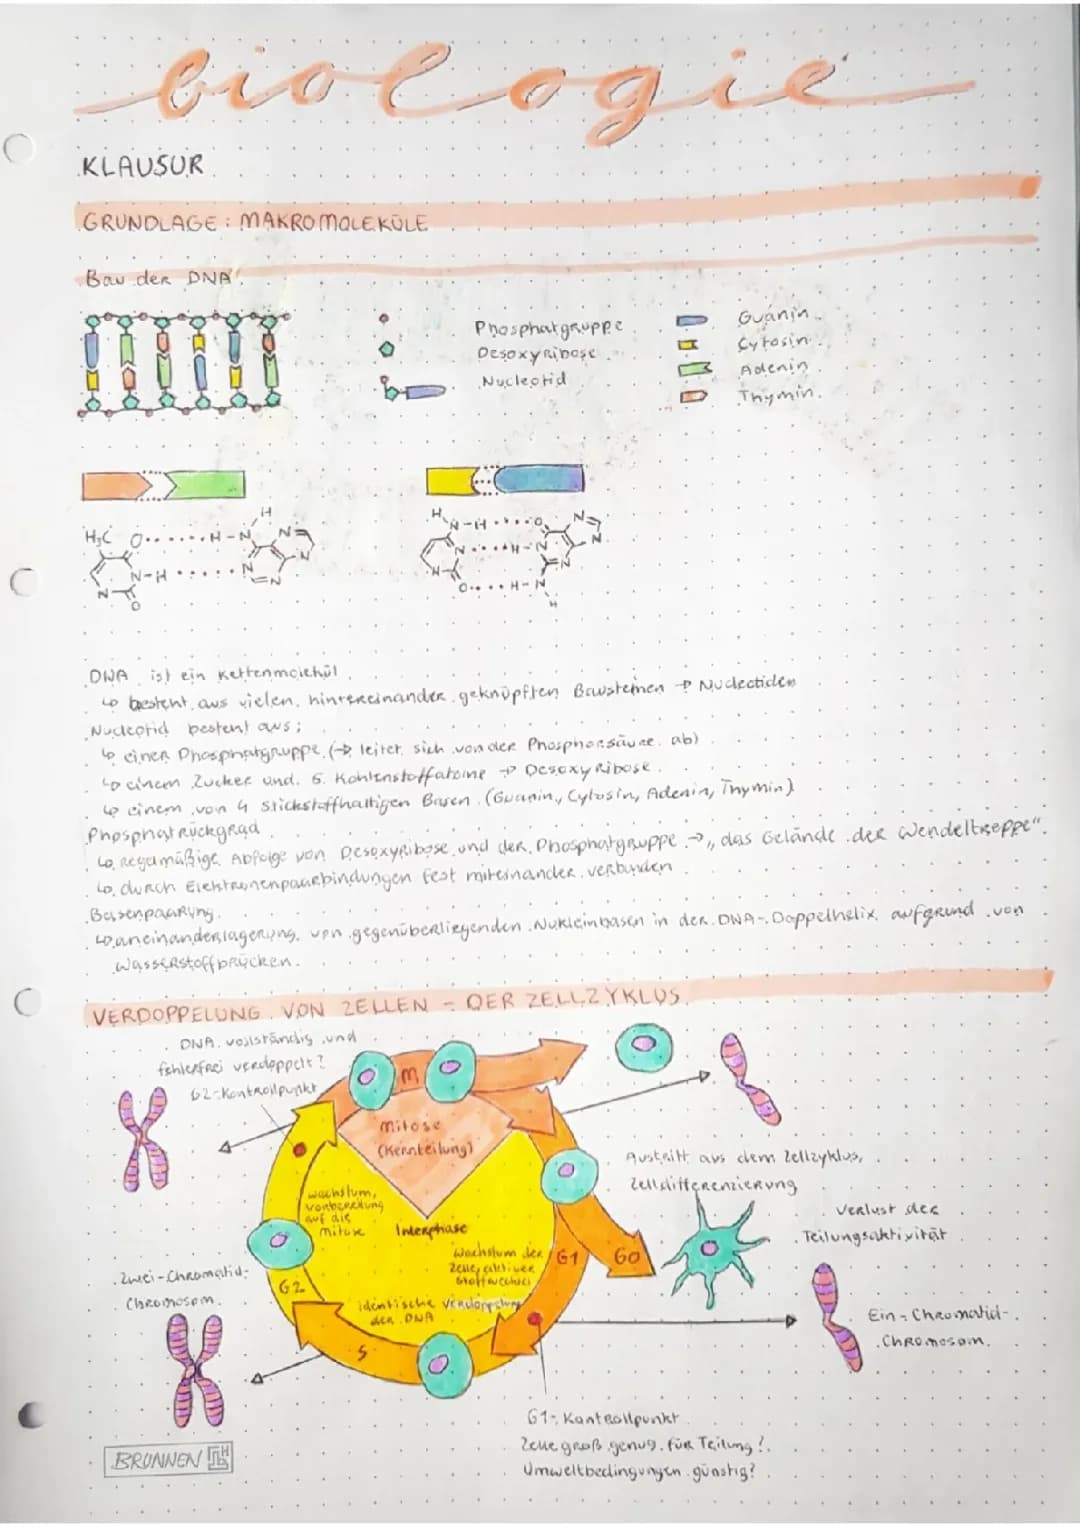 biologie
KLAUSUR
GRUNDLAGE: MAKROMOLEKÜLE
Bau der DNA:
Phosphatgruppe
Desoxyribose
Nucleotid
Guanin
Cytosin
Adenin
Thymin
H₃C O H-N H N N
N-H N N N
N O
H N-H O N N
N H-N N
N O H-N H
DNA ist ein Kettenmolekül
↳ besteht aus vielen hintereinander geknüpften Bausteinen → Nucleotiden
Nucleotid besteht aus:
↳ einer Phosphatgruppe (→ leitet sich von der Phosphorsäure ab)
↳ einem Zucker und 5 Kohlenstoffatome → Desoxyribose
↳ einem von 4 stickstoffhaltigen Basen (Guanin, Cytosin, Adenin, Thymin)
Phosphatrückgrad
↳ regelmäßige Abfolge von Desoxyribose und der Phosphatgruppe → „das Gelände der Wendeltreppe".
↳ durch Elektronenpaarbindungen fest miteinander verbunden
Basenpaarung
↳ aneinanderlagerung von gegenüberliegenden Nukleinbasen in der DNA-Doppelhelix aufgrund von
Wasserstoffbrücken.
VERDOPPELUNG VON ZELLEN - DER ZELLZYKLUS
DNA vollständig und
fehlerfrei verdoppelt?
G2-Kontrollpunkt
M
Mitose
(Kernteilung)
Wachstum,
Vorbereitung
auf die
Mitose
Interphase
Wachstum der
Zelle, aktiver
Stoffwechsel
identische Verdopplung
der DNA
G1
G0
G2
S
Austritt aus dem Zellzyklus,
Zelldifferenzierung
Verlust der
Teilungsaktivität
Zwei-Chromatid-
Chromosom
Ein-Chromatid-
Chromosom
G1-Kontrollpunkt
Zelle groß genug für Teilung?
Umweltbedingungen günstig?
BRUNNEN